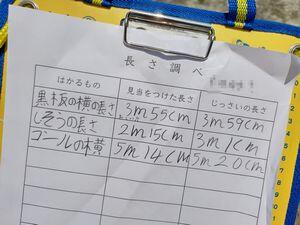 長さ調べ
はかるもの 見当をつけた長さ じっさいの長さ
黒板の横の長さ 3m55cm 3m59cm
しそうの長さ 2m15cm 3m1cm
ゴールの横 5m14cm 5m20cm